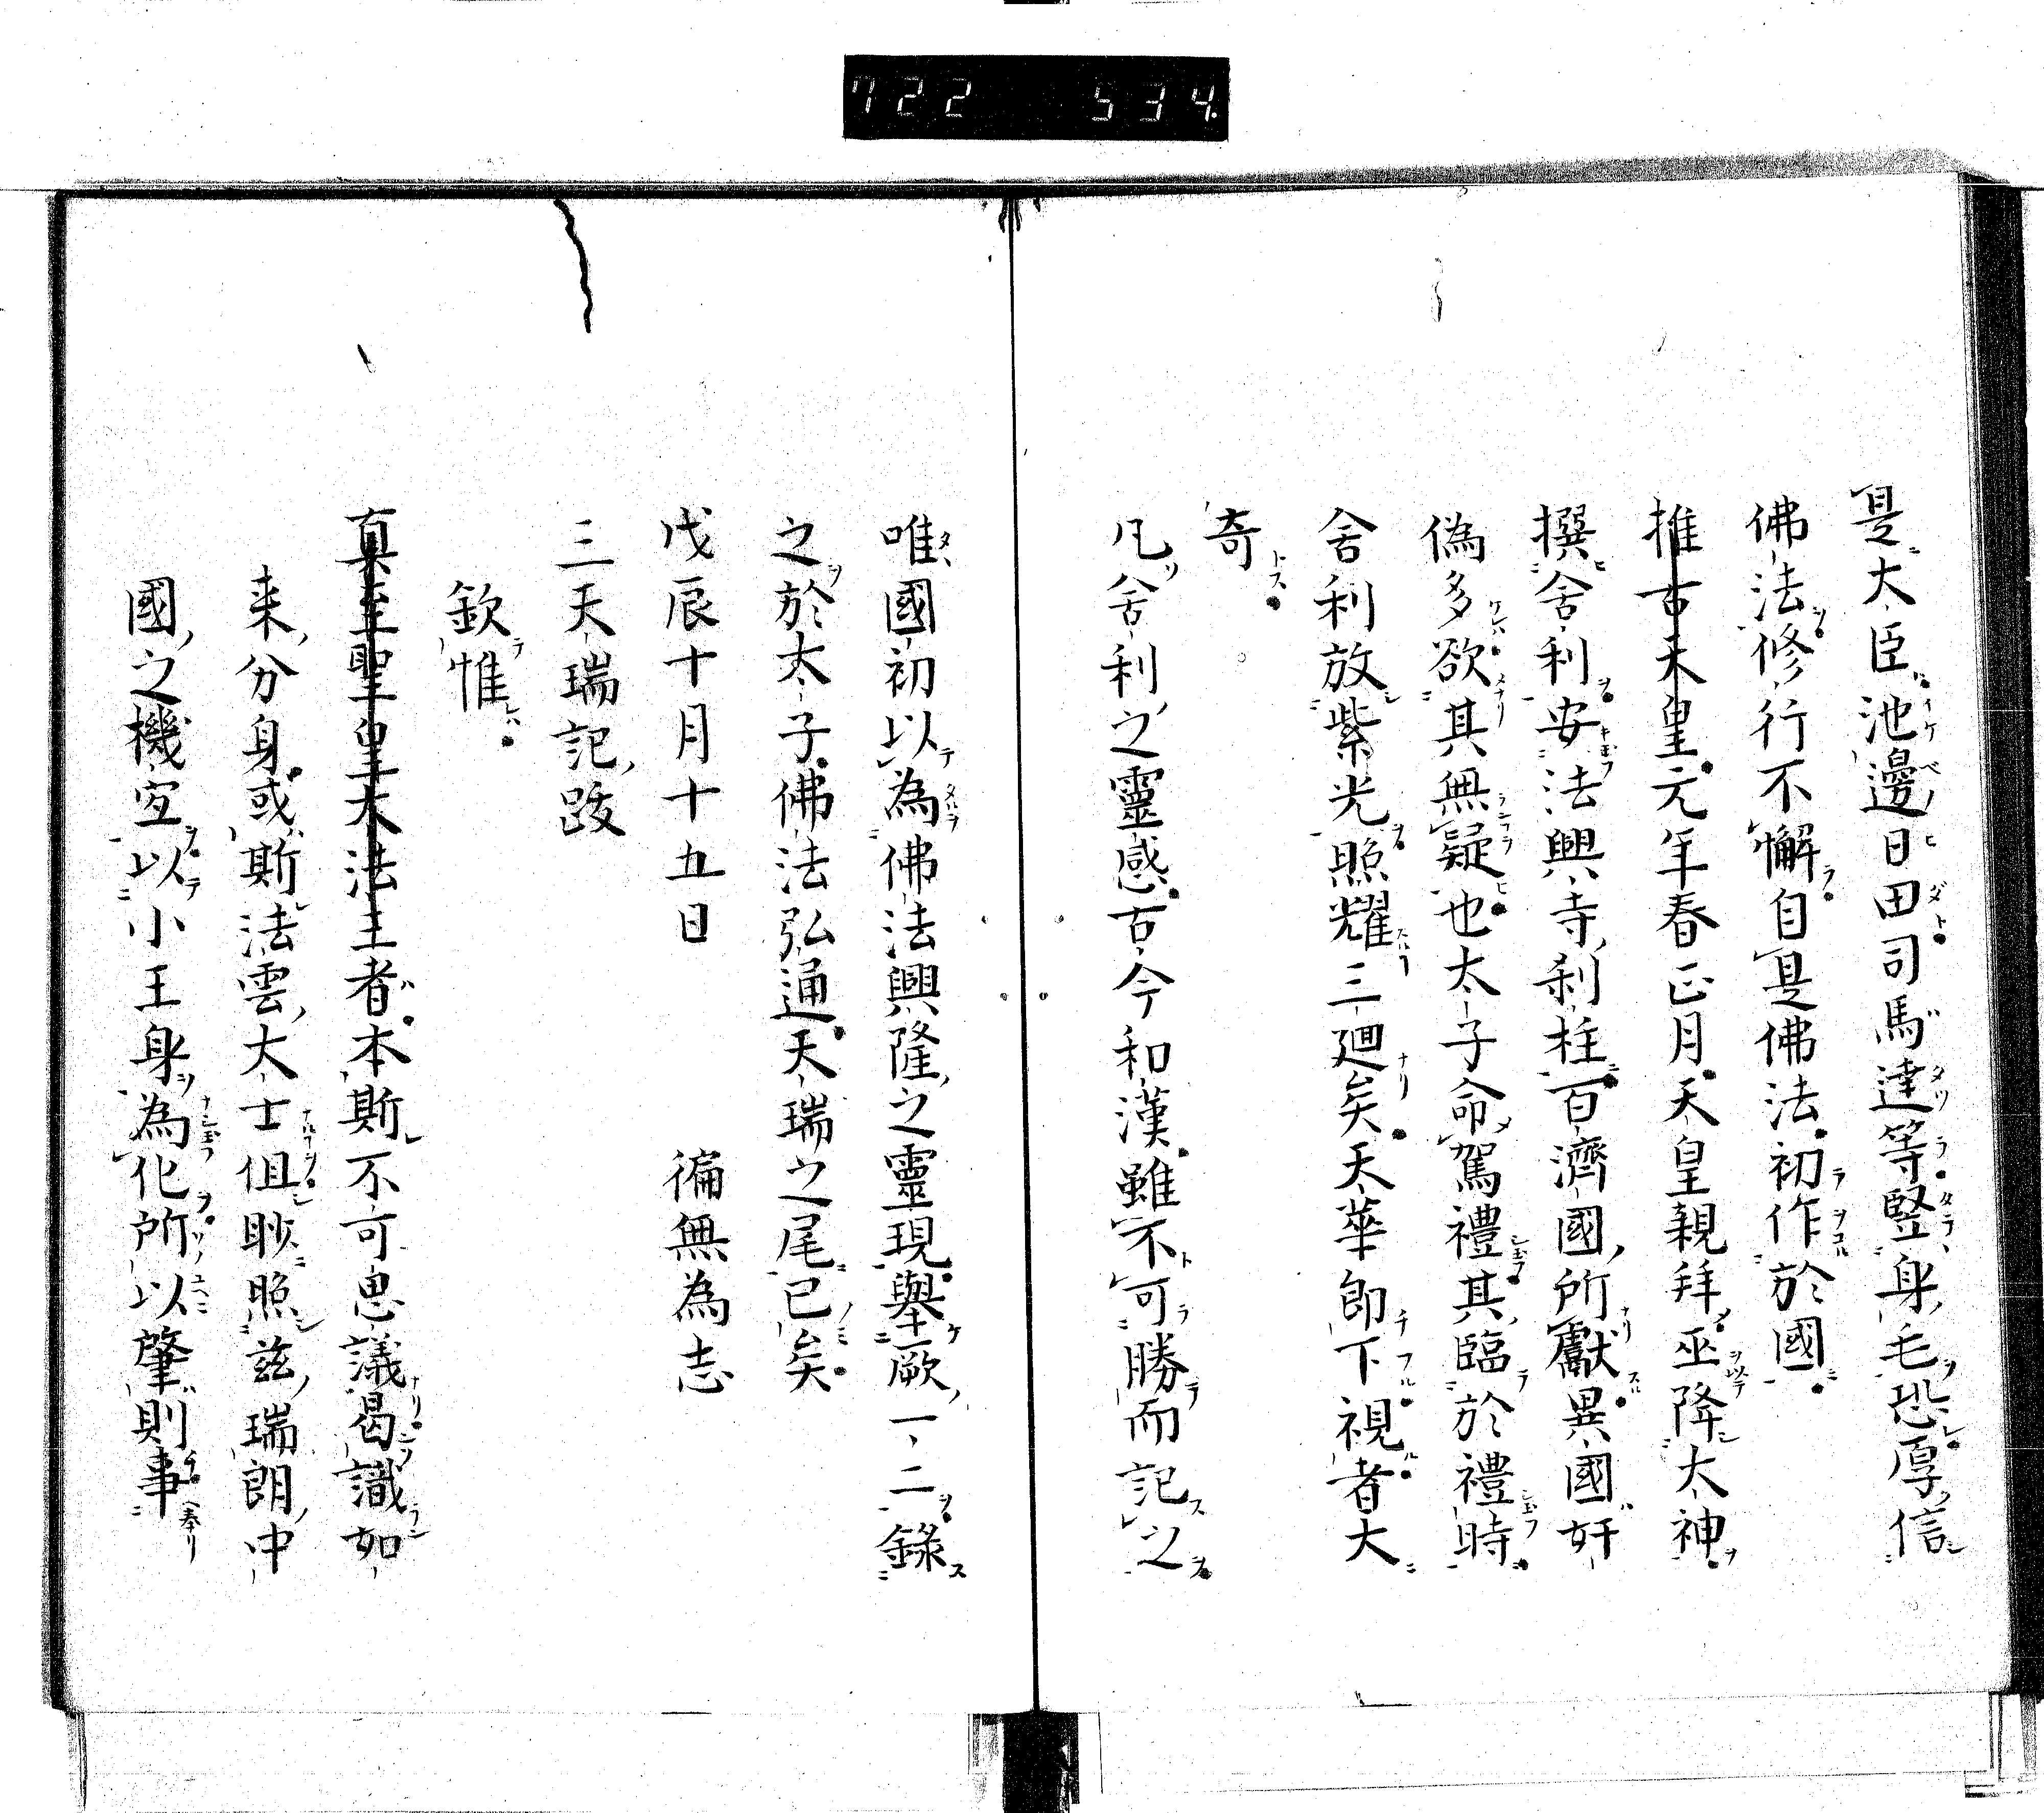 722 534
是大臣池邊日田司馬達等豎身毛恐厚信
佛法修行不懈自是佛法初作於國
推古天皇元年春正月天皇親拜巫降太神
撰舍利安法興寺刹柱百濟國所獻異國奸
偽多欲其無疑也太子命駕禮其臨於禮時
舍利放紫光照耀三廻矣天華即下視者大
奇
凡舍利之靈感古今和漢雖不可勝而記之
唯國初以為佛法興隆之靈現舉厥一二錄
之於太子佛法弘通天瑞之尾已矣
戊辰十月十五日　徧無為志
三天瑞記跋
欽惟
真至聖皇太法王者本斯不可思議曷識如
来分身或斯法雲大士但耿照茲瑞朗中
國之機宜以小王身為化所以肇則事